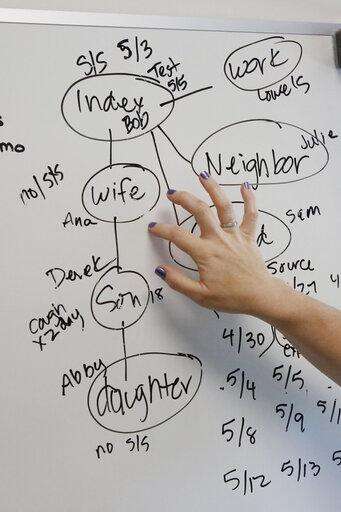 S/S 5/3
Test
5/5
Index
Bob
work
Lowe's
Julie
Neighbor
mo
no/S/S
wife
Ana
Sam
d
Derek
Source
Son 18
cough
x2 day
4/30
Abby
daughter
no S/S
5/4 5/5
5/8 5/9 5/1
5/12 5/13 5